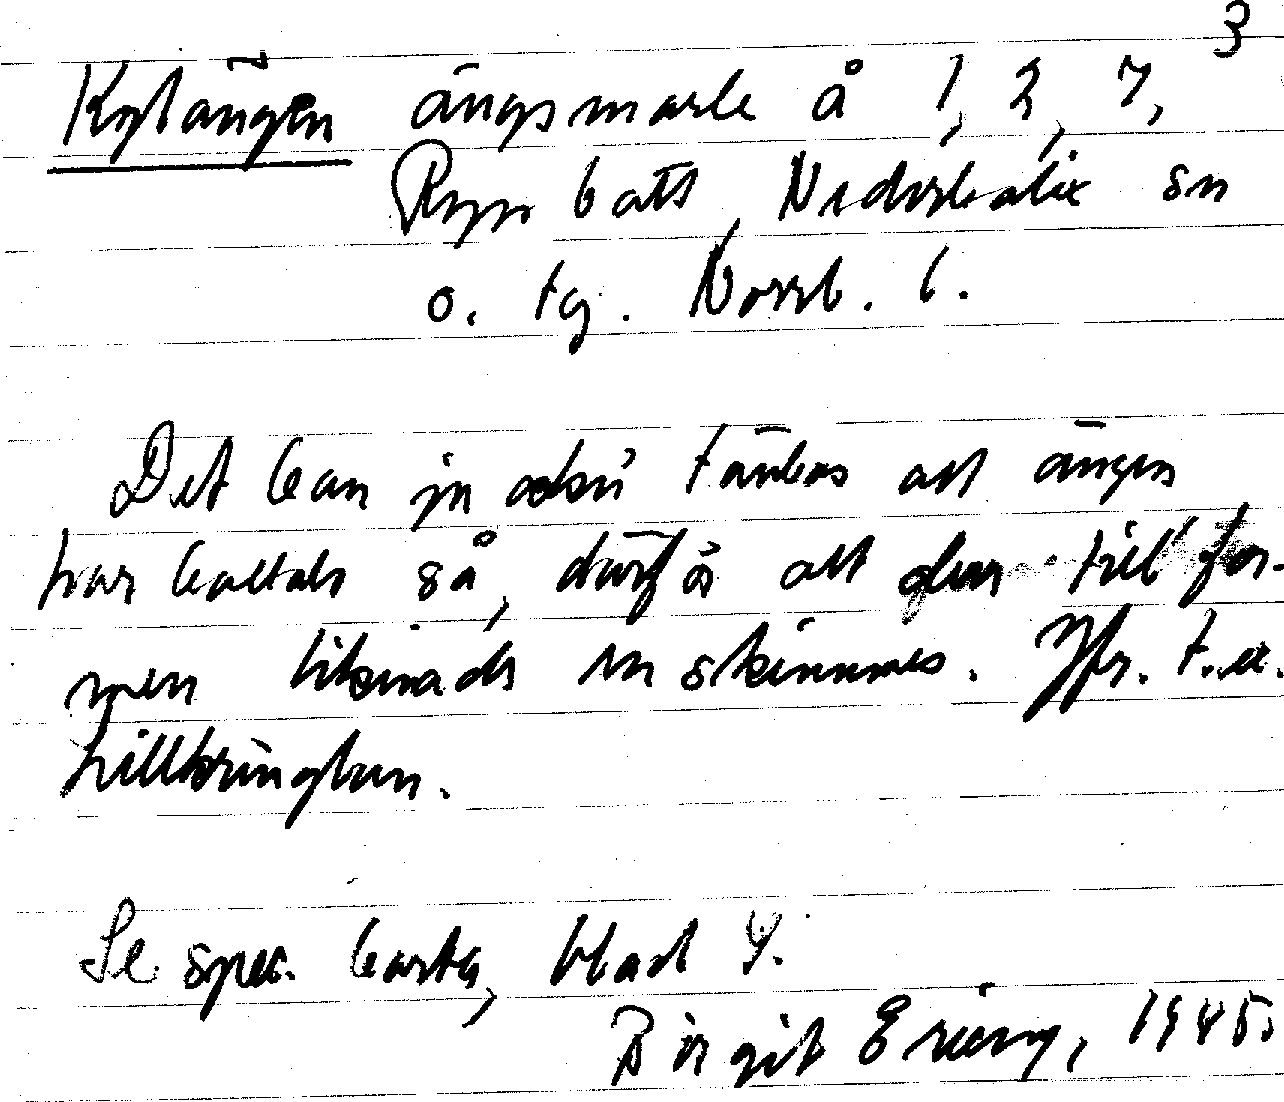 3
Kylängen ängsmark å 1, 2, 7,
Ryss bält, Nederkalix sn
o. tg. Norrb. l.
Det kan ju också tänkas att ängen
har kallats så, därför att den till for-
men liknade en skinnves. Jfr. t.ex.
Lillkringlan.
Se spec. karta, blad 4.
Birgit Ering, 1945.